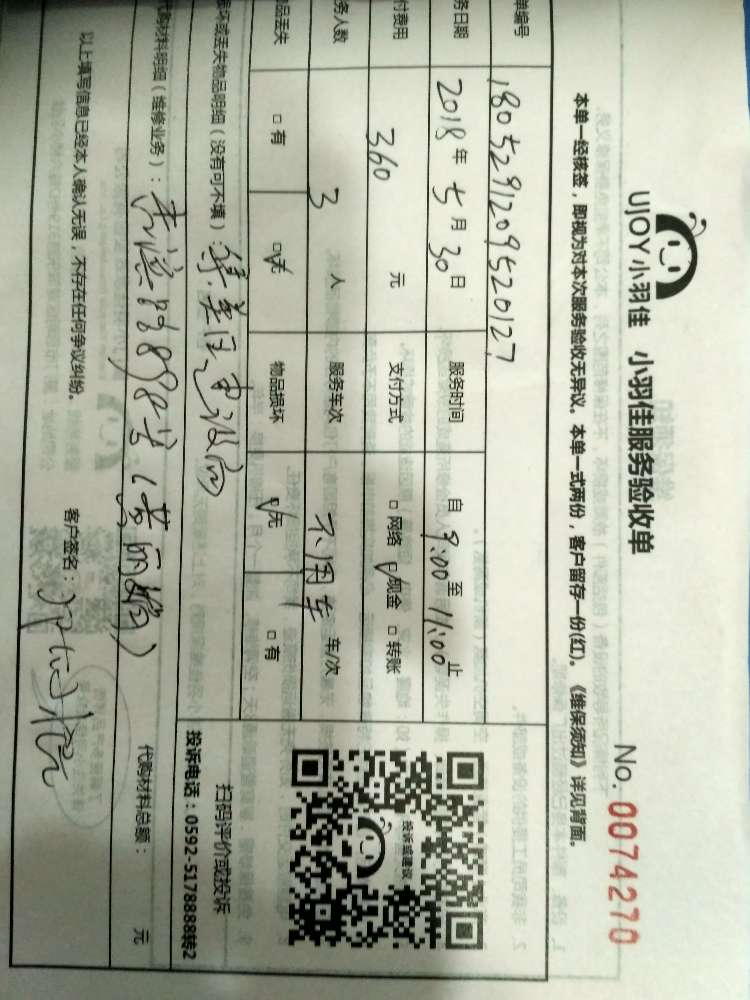 UJOY小羽佳 小羽佳服务验收单
No. 0074270
本单一经核签，即视为对本次服务验收无异议。本单一式两份，客户留存一份(红)。《维保须知》详见背面。
单编号 1805291209520127
务日期 2018年5月30日 服务时间 自9:00至11:00止
付费用 360 元 支付方式 □网络 ☑现金 □转账
务人数 3 人 服务车次 不用车 车/次
品丢失 □有 ☑无 物品损坏 ☑无 □有
损坏或丢失物品明细（没有可不填）：
代购材料明细（维修业务）： 8898号(黄丽娟)
代购材料总额： 元
以上填写信息已经本人确认无误，不存在任何争议纠纷。 客户签名：
投诉或建议
扫码评价或投诉
投诉电话：0592-5178888转2